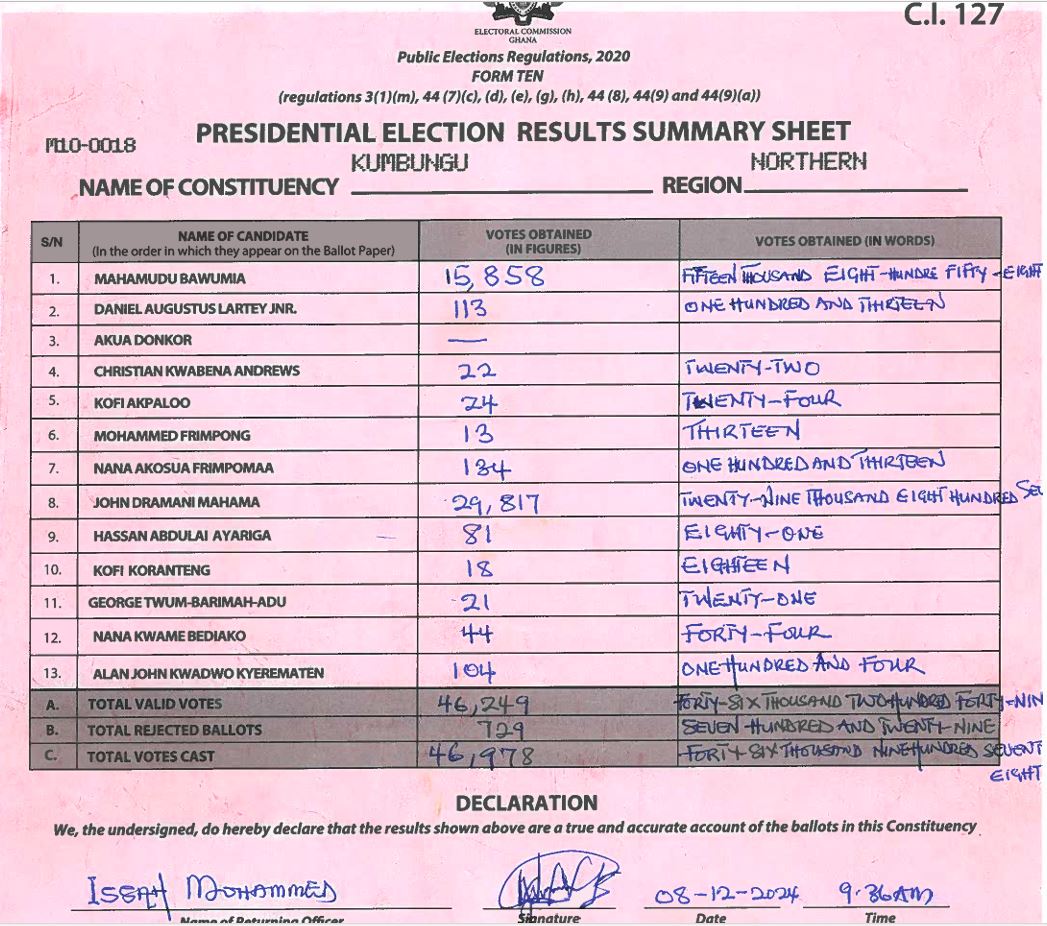 C.I. 127
ELECTORAL COMMISSION
GHANA
Public Elections Regulations, 2020
FORM TEN
(regulations 3(1)(m), 44 (7)(c), (d), (e), (g), (h), 44 (8), 44(9) and 44(9)(a))
PRESIDENTIAL ELECTION RESULTS SUMMARY SHEET
M10-0018
KUMBUNGU NORTHERN
NAME OF CONSTITUENCY REGION
S/N NAME OF CANDIDATE (In the order in which they appear on the Ballot Paper) VOTES OBTAINED (IN FIGURES) VOTES OBTAINED (IN WORDS)
1. MAHAMUDU BAWUMIA 15,858 FIFTEEN THOUSAND EIGHT-HUNDRE FIFTY-EIGHT
2. DANIEL AUGUSTUS LARTEY JNR. 113 ONE HUNDRED AND THIRTEEN
3. AKUA DONKOR —
4. CHRISTIAN KWABENA ANDREWS 22 TWENTY-TWO
5. KOFI AKPALOO 24 TWENTY-FOUR
6. MOHAMMED FRIMPONG 13 THIRTEEN
7. NANA AKOSUA FRIMPOMAA 134 ONE HUNDRED AND THIRTEEN
8. JOHN DRAMANI MAHAMA 29,817 TWENTY-NINE THOUSAND EIGHT HUNDRED SE
9. HASSAN ABDULAI AYARIGA 81 EIGHTY-ONE
10. KOFI KORANTENG 18 EIGHTEEN
11. GEORGE TWUM-BARIMAH-ADU 21 TWENTY-ONE
12. NANA KWAME BEDIAKO 44 FORTY-FOUR
13. ALAN JOHN KWADWO KYEREMATEN 104 ONE HUNDRED AND FOUR
A. TOTAL VALID VOTES 46,249 FORTY-SIX THOUSAND TWO HUNDRED FORTY-NIN
B. TOTAL REJECTED BALLOTS 729 SEVEN HUNDRED AND TWENTY-NINE
C. TOTAL VOTES CAST 46,978 FORTY SIX THOUSAND NINE HUNDRED SEVENT
EIGHT
DECLARATION
We, the undersigned, do hereby declare that the results shown above are a true and accurate account of the ballots in this Constituency
ISSAH MOHAMMED 08-12-2024 9:36AM
Name of Returning Officer Signature Date Time